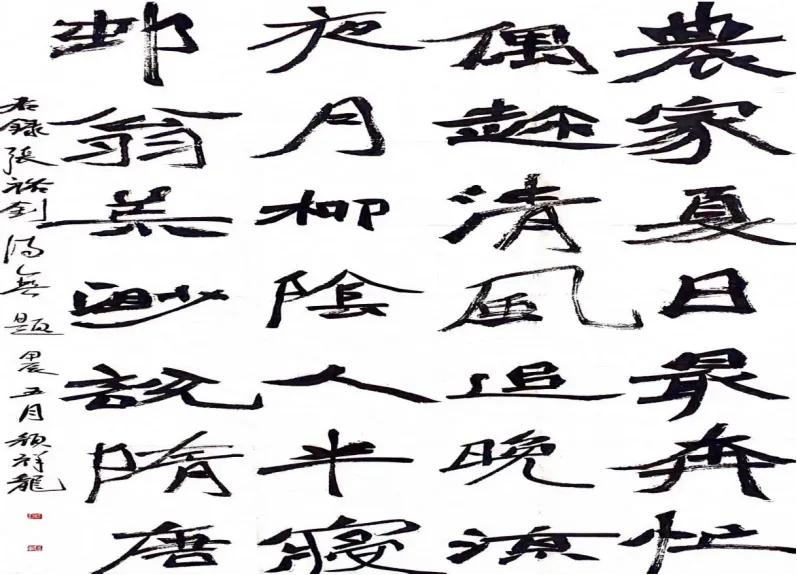 農家夏日最奔忙
偶趂清風追晚涼
夜月柳陰人半寢
邨翁渺說隋唐
右錄張裕釗無題 甲辰五月 祥龍